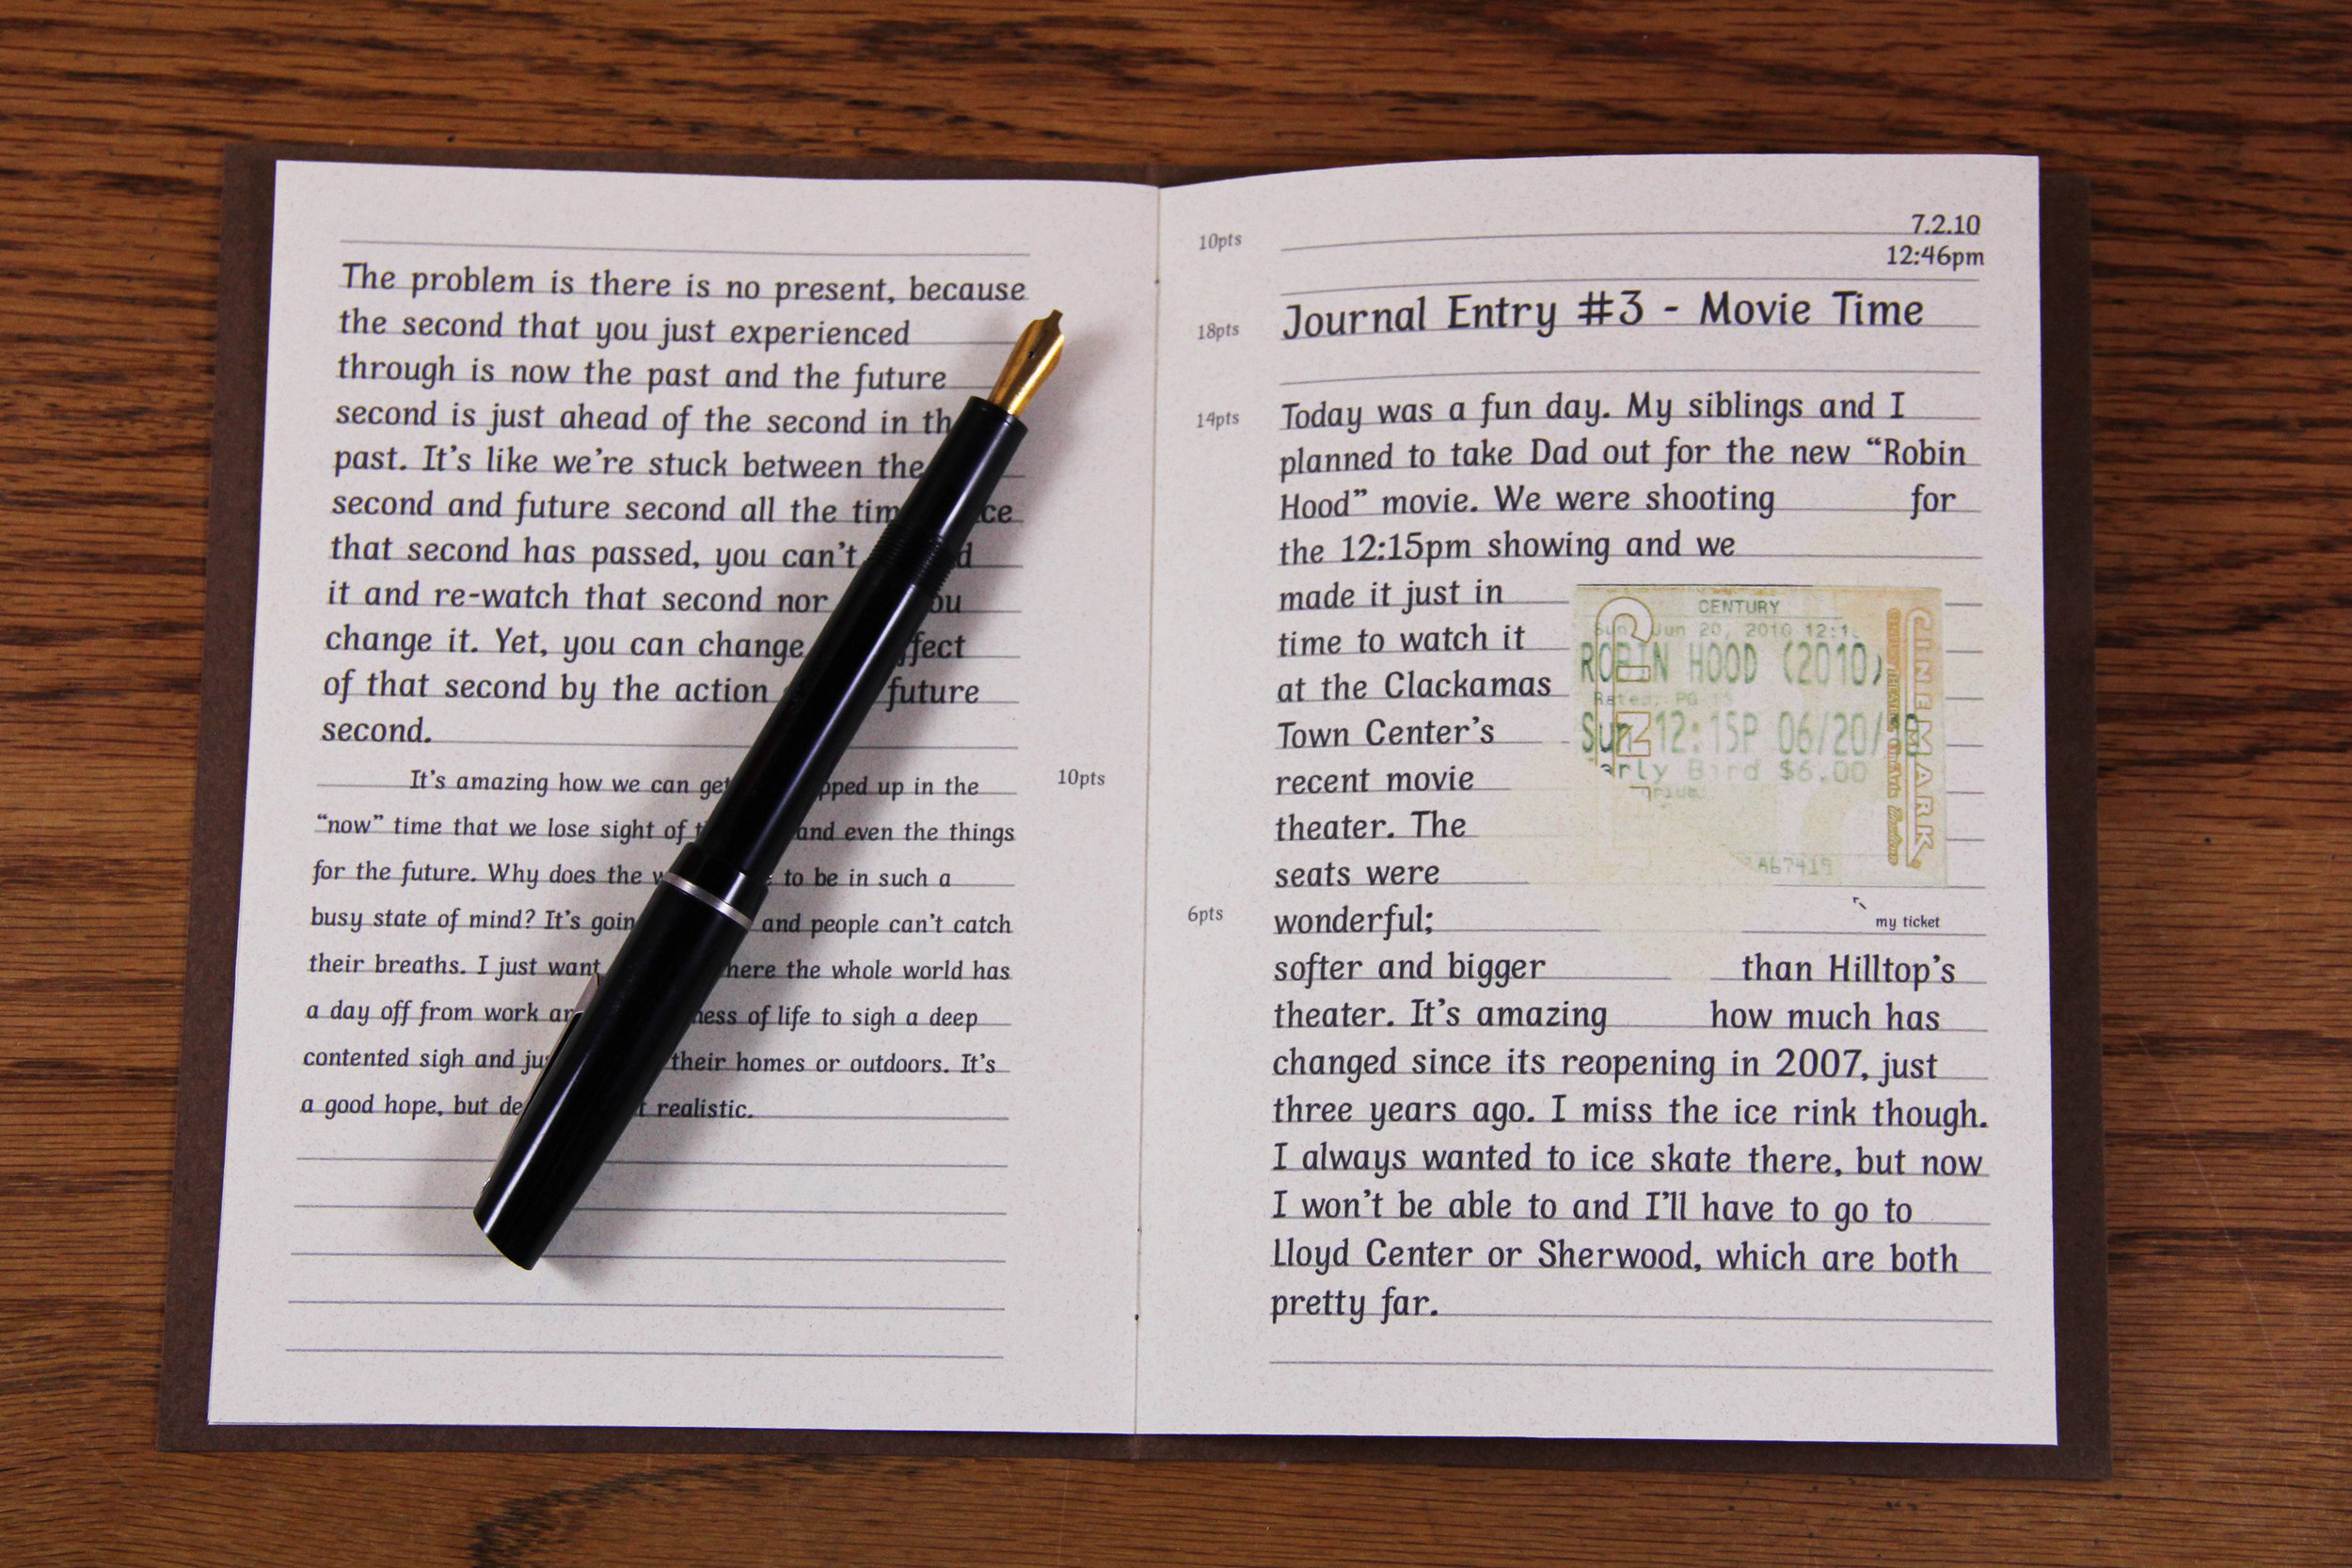 The problem is there is no present, because
the second that you just experienced
through is now the past and the future
second is just ahead of the second in th
past. It's like we're stuck between the
second and future second all the tim ce
that second has passed, you can't d
it and re-watch that second nor ou
change it. Yet, you can change ffect
of that second by the action future
second.
It's amazing how we can get pped up in the
“now” time that we lose sight of t and even the things
for the future. Why does the w to be in such a
busy state of mind? It's goin and people can't catch
their breaths. I just want here the whole world has
a day off from work an ness of life to sigh a deep
contented sigh and jus their homes or outdoors. It's
a good hope, but de t realistic.
10pts
10pts
7.2.10
12:46pm
18pts
Journal Entry #3 - Movie Time
14pts
Today was a fun day. My siblings and I
planned to take Dad out for the new “Robin
Hood” movie. We were shooting for
the 12:15pm showing and we
made it just in
time to watch it
at the Clackamas
Town Center's
recent movie
theater. The
seats were
6pts
wonderful;
softer and bigger than Hilltop's
theater. It's amazing how much has
changed since its reopening in 2007, just
three years ago. I miss the ice rink though.
I always wanted to ice skate there, but now
I won't be able to and I'll have to go to
Lloyd Center or Sherwood, which are both
pretty far.
CENTURY
Sun, Jun 20, 2010 12:1
ROBIN HOOD (2010)
Rated: PG
Sun 12:15P 06/20/
arly Bird $6.00
A67419
CINEMARK
my ticket